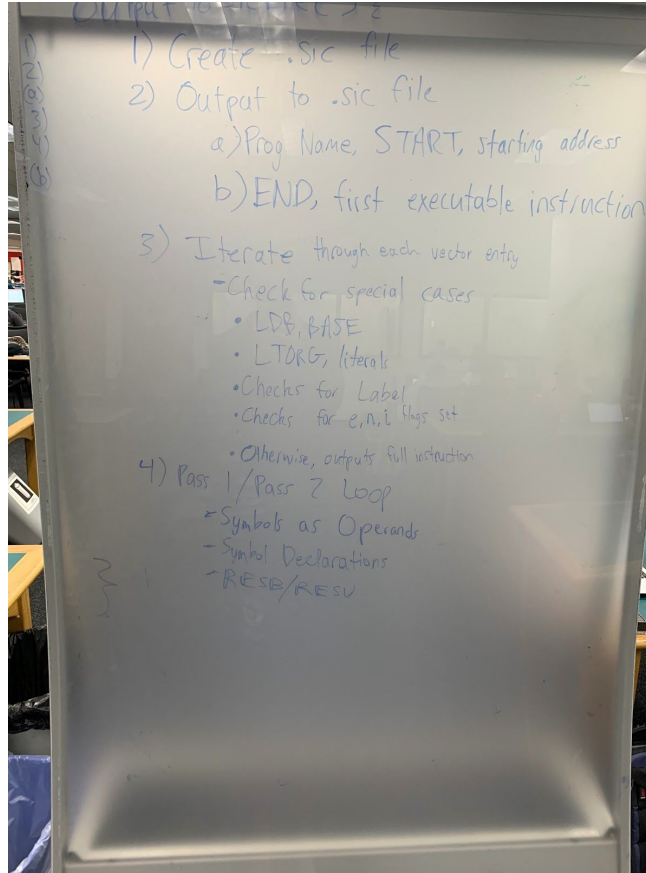 Output
1) Create .sic file
2) Output to .sic file
a) Prog Name, START, starting address
b) END, first executable instruction
3) Iterate through each vector entry
- Check for special cases
• LDB, BASE
• LTORG, literals
• Checks for Label
• Checks for e,n,i flags set
• Otherwise, outputs full instruction
4) Pass 1/Pass 2 Loop
- Symbols as Operands
- Symbol Declarations
- RESB/RESW